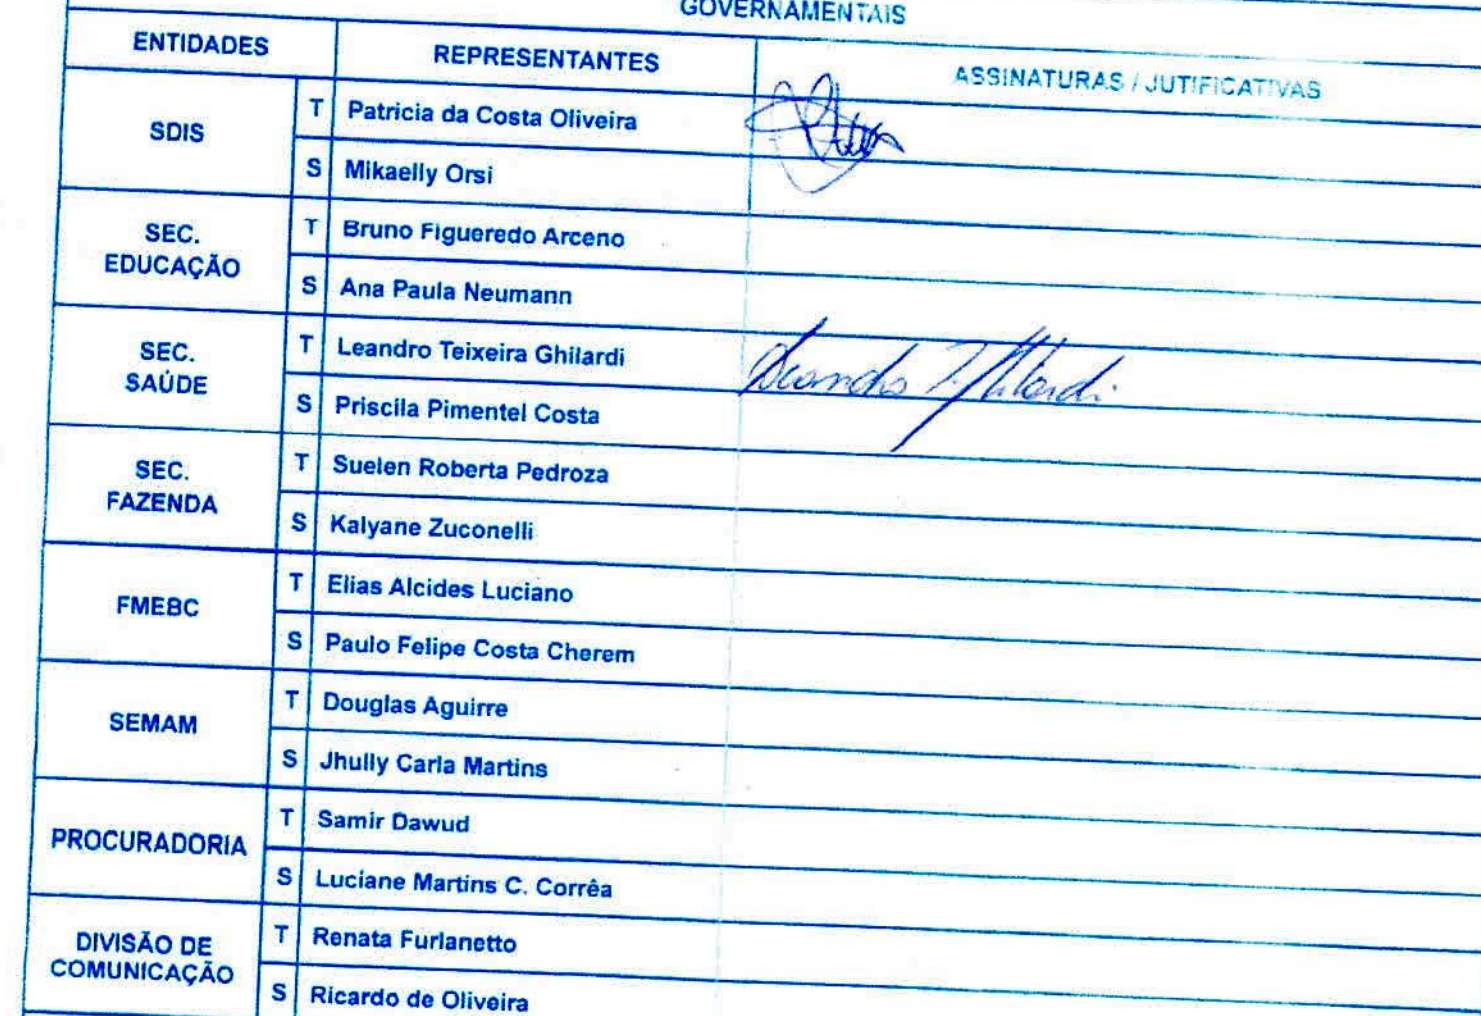 GOVERNAMENTAIS
ENTIDADES REPRESENTANTES ASSINATURAS / JUTIFICATIVAS
SDIS
T Patricia da Costa Oliveira
S Mikaelly Orsi
SEC.
EDUCAÇÃO
T Bruno Figueredo Arceno
S Ana Paula Neumann
SEC.
SAÚDE
T Leandro Teixeira Ghilardi Leandro T. Ghilardi
S Priscila Pimentel Costa
SEC.
FAZENDA
T Suelen Roberta Pedroza
S Kalyane Zuconelli
FMEBC
T Elias Alcides Luciano
S Paulo Felipe Costa Cherem
SEMAM
T Douglas Aguirre
S Jhully Carla Martins
PROCURADORIA
T Samir Dawud
S Luciane Martins C. Corrêa
DIVISÃO DE
COMUNICAÇÃO
T Renata Furlanetto
S Ricardo de Oliveira